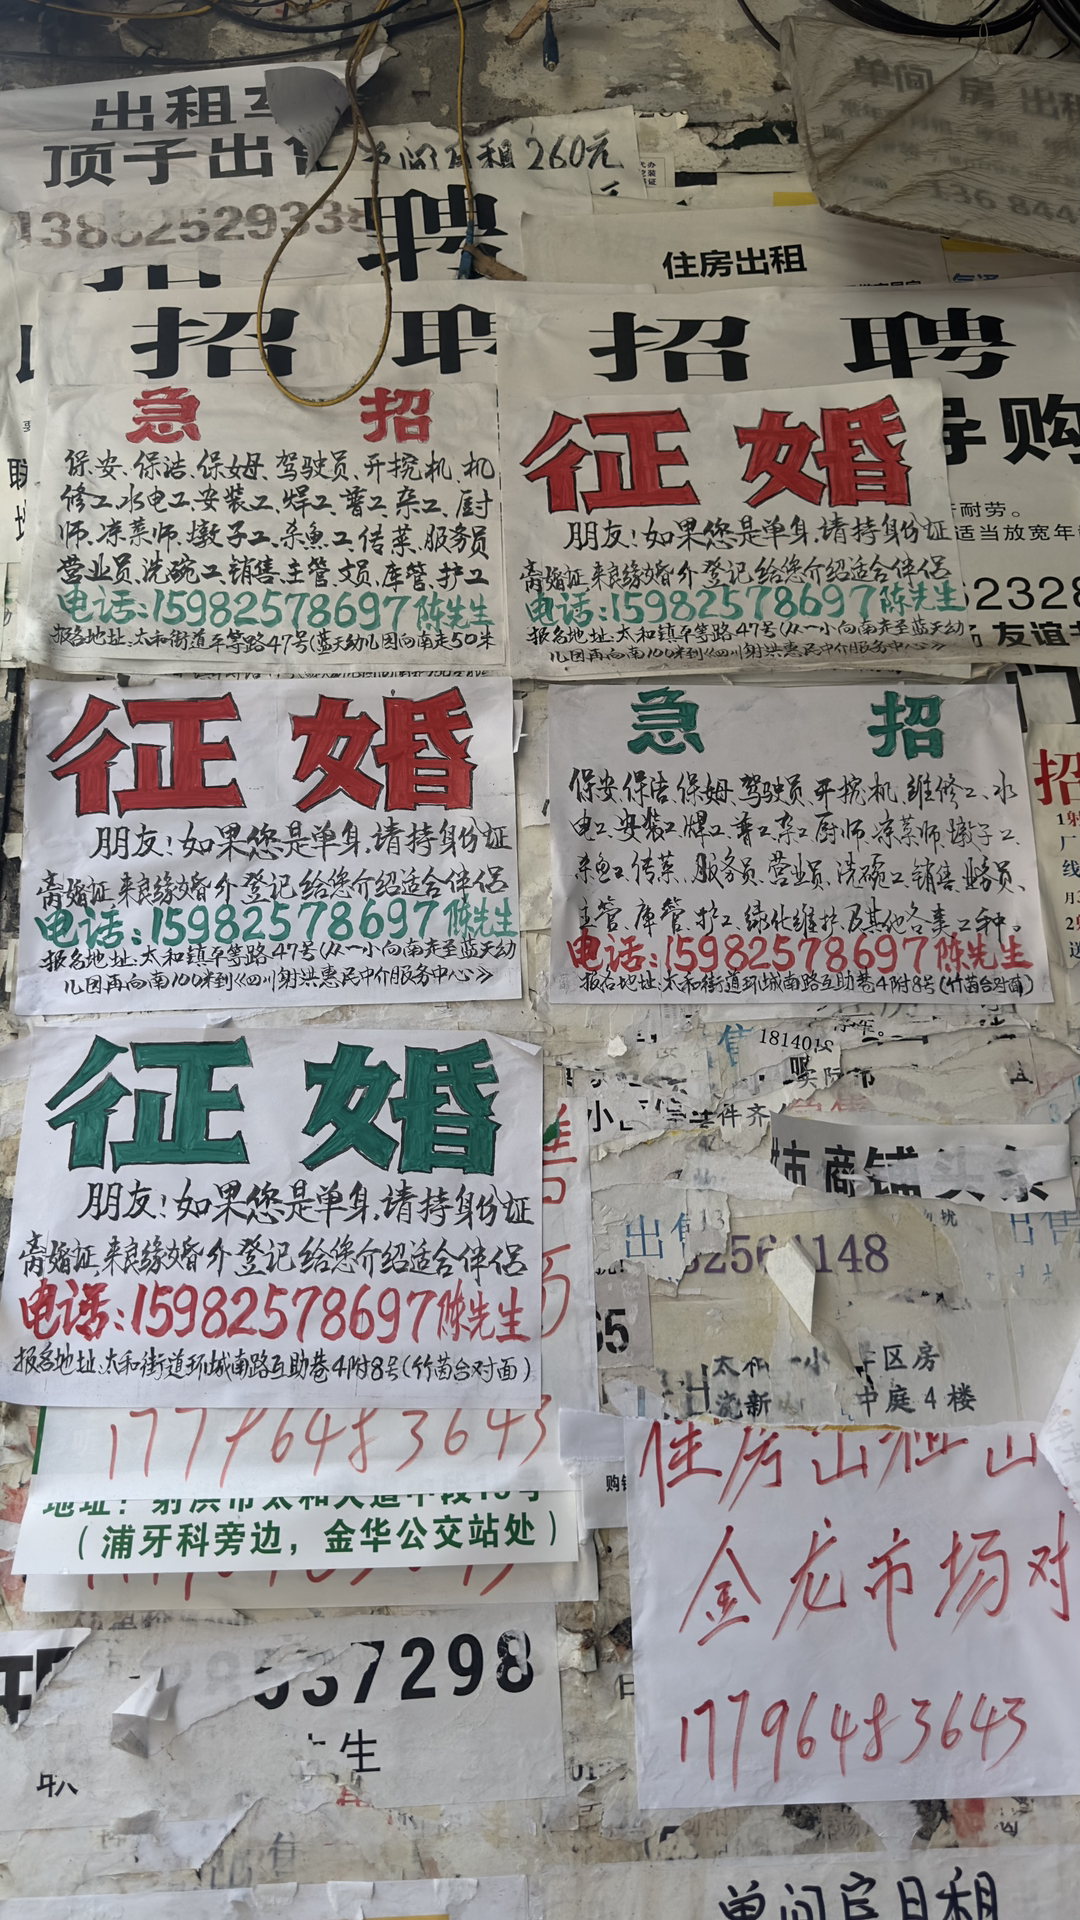 出租车
顶子出
月租260元
单间 房 出租
住房出租
聘
招
招 聘
急 招
保安、保洁、保姆、驾驶员、开挖机、机
修工、水电工、安装工、焊工、普工、杂工、厨
师、凉菜师、墩子工、杀鱼工、传菜、服务员
营业员、洗碗工、销售、主管、文员、库管、护工
电话:15982578697陈先生
报名地址:太和街道平等路47号(蓝天幼儿园向南走50米
征婚
朋友!如果您是单身,请持身份证
离婚证,来良缘婚介登记给您介绍适合伴侣
电话:15982578697陈先生
报名地址:太和镇平等路47号(从一小向南走至蓝天幼
儿园再向南100米到《四川射洪惠民中介服务中心》
导购
耐劳。
适当放宽年
征婚
朋友!如果您是单身,请持身份证
离婚证,来良缘婚介登记给您介绍适合伴侣
电话:15982578697陈先生
报名地址:太和镇平等路47号(从一小向南走至蓝天幼
儿园再向南100米到《四川射洪惠民中介服务中心》
急 招
保安、保洁、保姆、驾驶员、开挖机、维修工、水
电工、安装工、焊工、普工、杂工、厨师、凉菜师、墩子工、
杀鱼工、传菜、服务员、营业员、洗碗工、销售、业务员、
主管、库管、护工、绿化维护、及其他各类工种。
电话:15982578697陈先生
报名地址:太和街道环城南路互助巷4附8号(竹茵台对面)
招
征婚
朋友!如果您是单身,请持身份证
离婚证,来良缘婚介登记给您介绍适合伴侣
电话:15982578697陈先生
报名地址:太和街道环城南路互助巷4附8号(竹茵台对面)
商铺
出售
148
区房
中庭4楼
17796483643
地址:射洪市太和大道中段
(浦牙科旁边,金华公交站处)
住房出租
金龙市场对
17796483643
37298
生
单间房月租